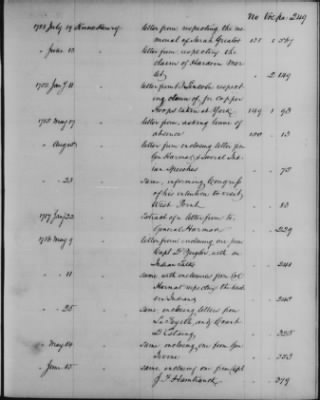 No Vol. pa. 249
1783 July 19 Knox Henry letter from respecting the me-
morial of Sarah Greator 137 2 557
" June 13 letter from respecting the
claim of Hardwin Mer-
" 2 149
1782 Jany 11 letter from B. Lincoln respect-
ing claim of, for Copper
Hoops taken at York 149 1 93
1785 May 17 letter from, asking leave of
absence 150 " 13
" August letter from inclosing letter from
Gen Harmar & several Ind-
ian Speeches " " 75
" 23 same, informing Congress
of his intention to visit
West Point " " 13
1787 Jany 22 extract of a letter from to
General Harmar " " 229
1786 May 9 letter from inclosing one from
Capt D. Zeigler, with an
Indian Talk " " 241
" 11 same with inclosures from Col
Harmar respecting the hos-
ile Indians " " 243
" 25 same inclosing letters from
La Fayette, and Count
D'Estaing, " " 335
" May 24 same inclosing one from Gen
Irvine " " 353
" June 15 same inclosing one from Capt
J. F. Hamtramck " " 379